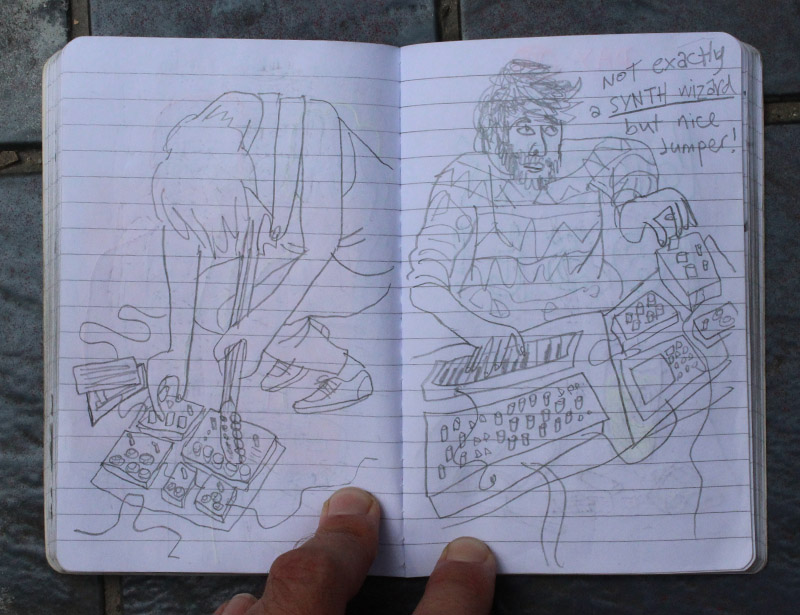 NOT exactly
a SYNTH wizard
but nice
Jumper!